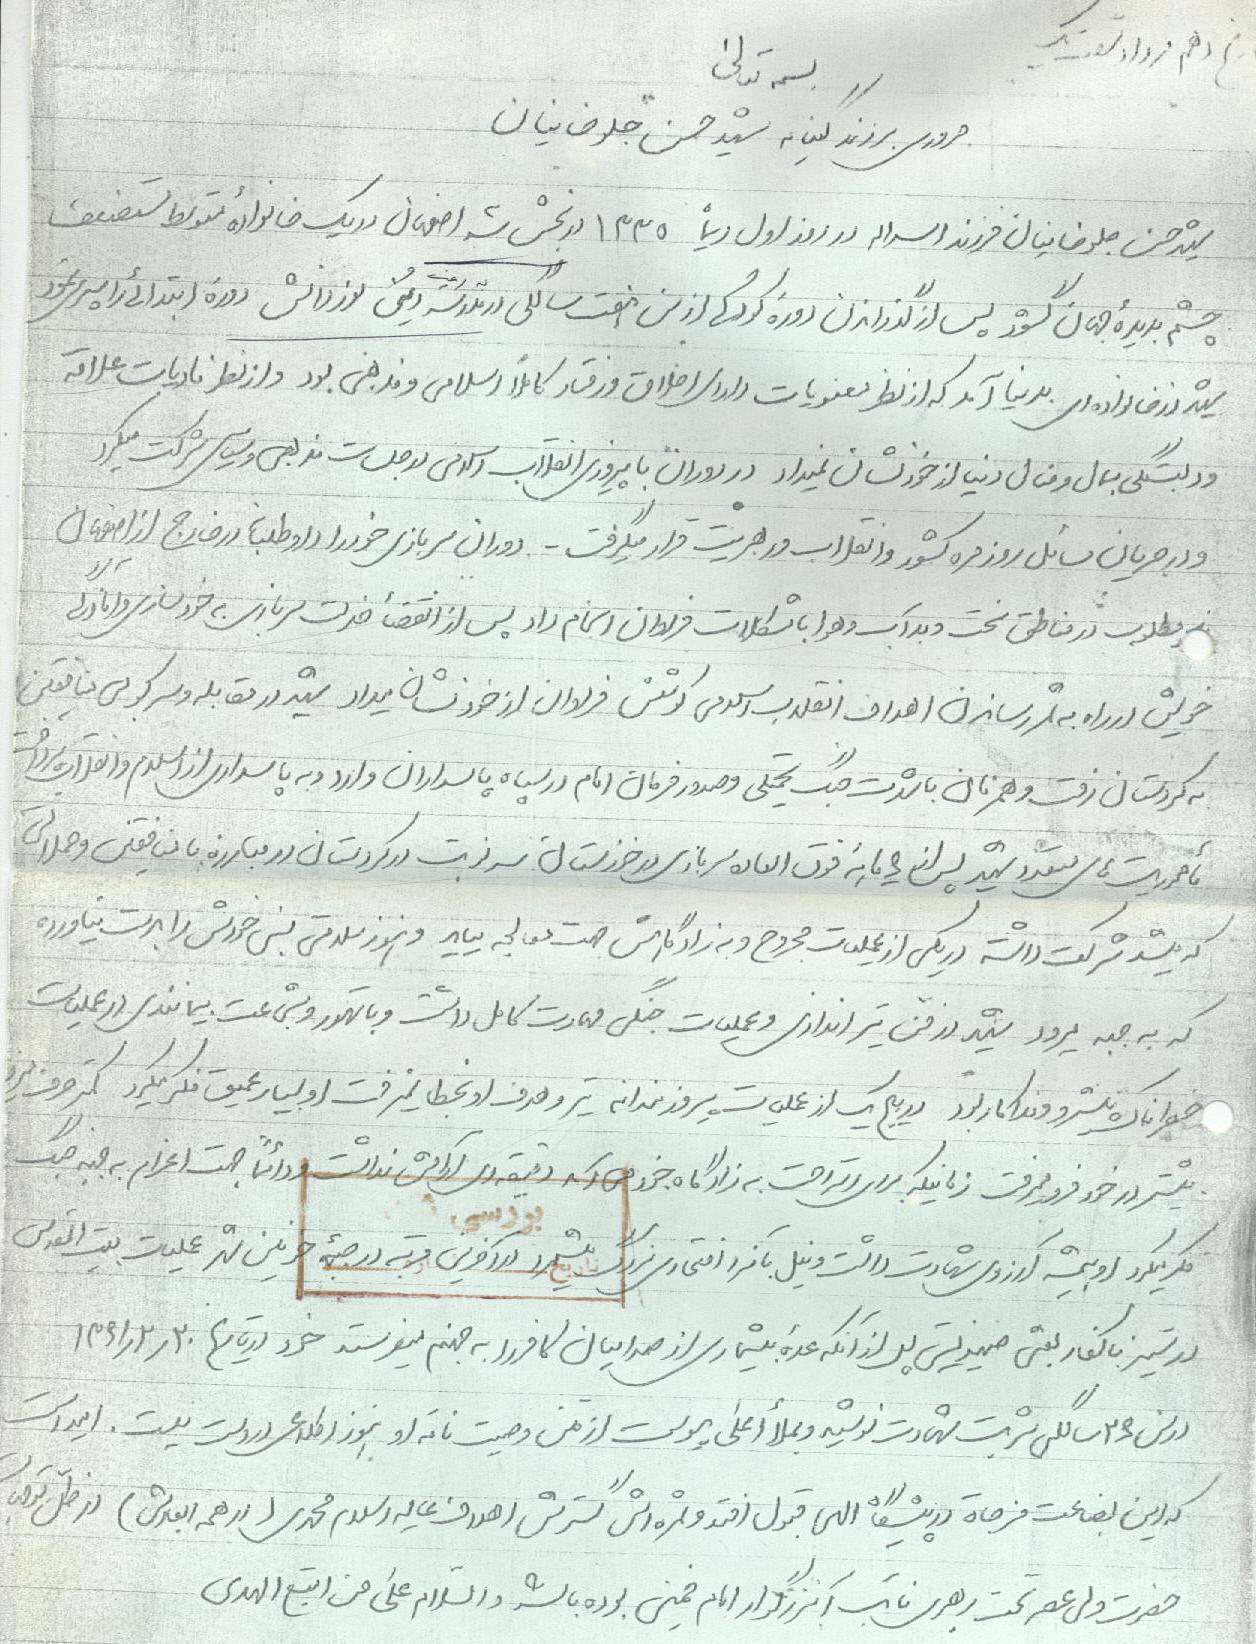 دهم مرداد شصت یک
بسمه تعالی
مروری بر زندگینامه شهید حسن جلوخانیان
شهید حسن جلوخانیان فرزند اسداله در روز اول دیماه ۱۳۳۵ در بخش سه اصفهان در یک خانواده متوسط مستضعف
چشم بدیده جهان گشود پس از گذراندن دوره کودکی از سن هفت سالگی در مدرسه نوردانش دوره ابتدائی را سپری نمود
شهید در خانواده‌ای بدنیا آمد که از نظر معنویات دارای اخلاق و رفتار کاملاً اسلامی و مذهبی بود و از نظر مادیات علاقه
و دلبستگی بمال و منال دنیا از خود نشان نمیداد در دوران با پیروزی انقلاب اسلامی در جلسات مذهبی و سیاسی شرکت میکرد
و در جریان مسائل روزمره کشور و انقلاب در هر جهت قرار میگرفت - دوران سربازی خود را داوطلبانه در خارج از اصفهان
در مناطق سخت و بد آب و هوا با مشکلات فراوان انجام داد پس از انقضاء خدمت سربازی به خودسازی و آمادگی
خویش در راه به ثمر رساندن اهداف انقلاب اسلامی کوشش فراوان از خود نشان میداد شهید در مقابله و سرکوبی منافقین
به کردستان رفت و همزمان با شدت جنگ تحمیلی و صدور فرمان امام در سپاه پاسداران وارد و به پاسداری از اسلام و انقلاب پرداخت
مأموریت‌های متعدد شهید پس از ماهه فوق العاده سربازی در خوزستان سه نوبت در کردستان در مبارزه با منافقین و حملاتی
که میشد شرکت داشته در یکی از عملیات مجروح و به زادگاهش جهت معالجه میاید و هنوز سلامتی خودش را بدست نیاورده
که به جبهه میرود شهید در فن تیر اندازی و عملیات جنگی مهارت کامل داشت و با تهور و شجاعت بیمانندی در عملیات
خطرناک پیشرو و فداکار بود در هیچ یک از عملیات پیروزمندانه تیر و هدف او بخطا نمیرفت او بسیار عمیق فکر میکرد کمتر حرف میزد
بیشتر در خود فرو میرفت زمانیکه برای استراحت به زادگاه خود می‌آمد دقیقه‌ای آرامش نداشت و دائماً جهت اعزام به جبهه جنگ
فکر میکرد او همیشه آرزوی شهادت داشت و نیل بآنرا افتخاری بزرگ میشمرد در آخرین مرتبه در جبهه خونین شهر عملیات بیت المقدس
در ستیز با کفار بعثی صهیونیستی پس از آنکه عده بیشماری از صدامیان کافر را به جهنم میفرستد خود در تاریخ ۱۳۶۱/۲/۲۰
در سن ۲۶ سالگی شربت شهادت نوشید و بملأ اعلی پیوست از متن وصیت نامه او هنوز اطلاعی در دست نیست. امید است
که این بضاعت مزجاة در پیشگاه الهی قبول افتد و ثمره‌اش گسترش اهداف عالیه اسلام محمدی (در همه ابعادش) در ظل توجهات
حضرت ولی عصر تحت رهبری نایب آن بزرگوار امام خمینی بوده باشد والسلام علی من اتبع الهدی
بررسی
تاریخ